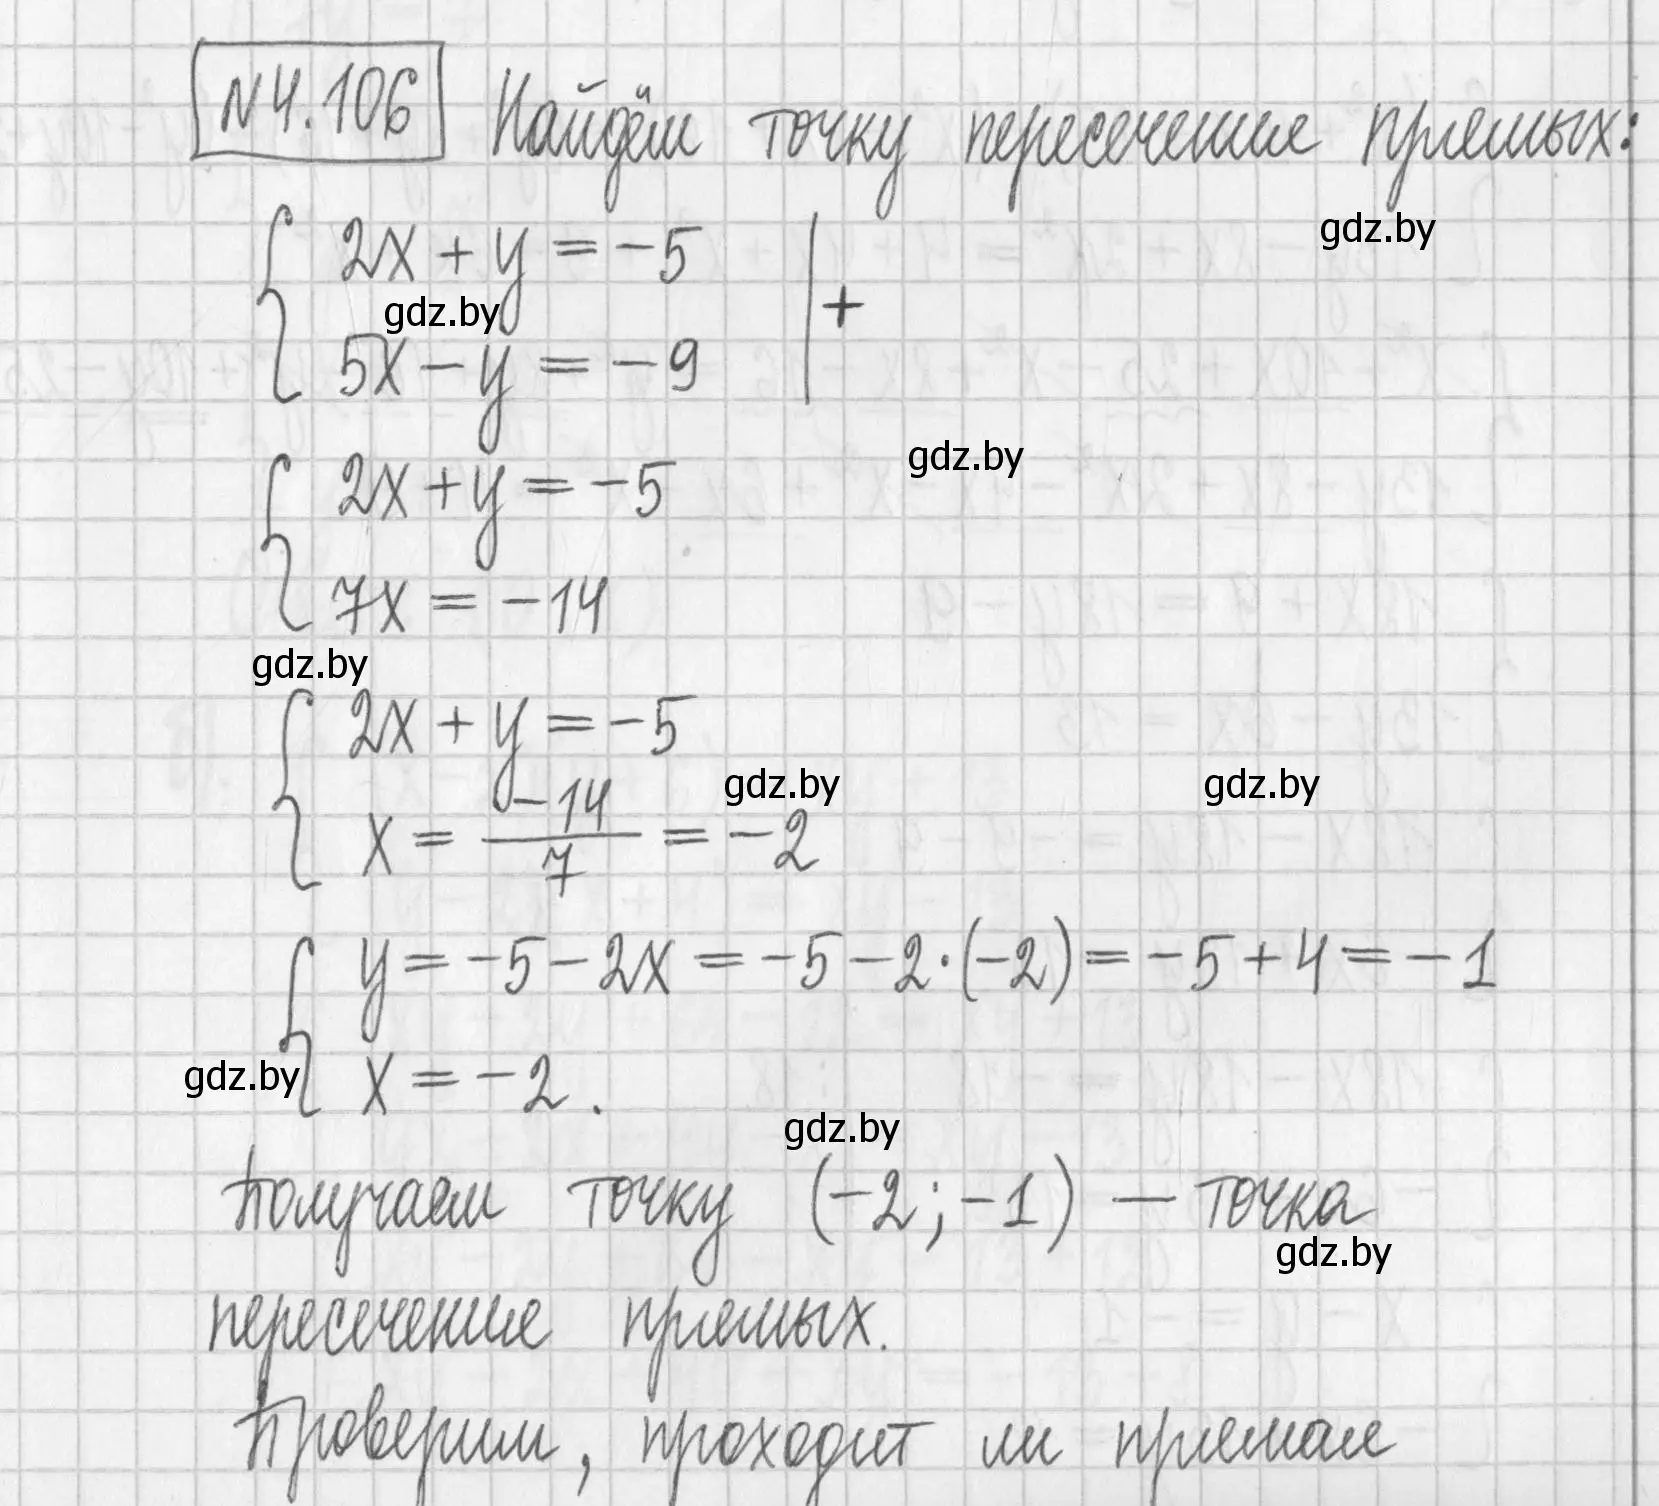 №4.106 Найдём точку пересечения прямых:
gdz.by
2x + y = -5
gdz.by
+
5x - y = -9
gdz.by
2x + y = -5
7x = -14
gdz.by
2x + y = -5
gdz.by gdz.by
x = -14/7 = -2
y = -5 - 2x = -5 - 2·(-2) = -5 + 4 = -1
gdz.by
x = -2.
gdz.by
Получаем точку (-2; -1) — точка
gdz.by
пересечения прямых.
Проверим, проходит ли прямая